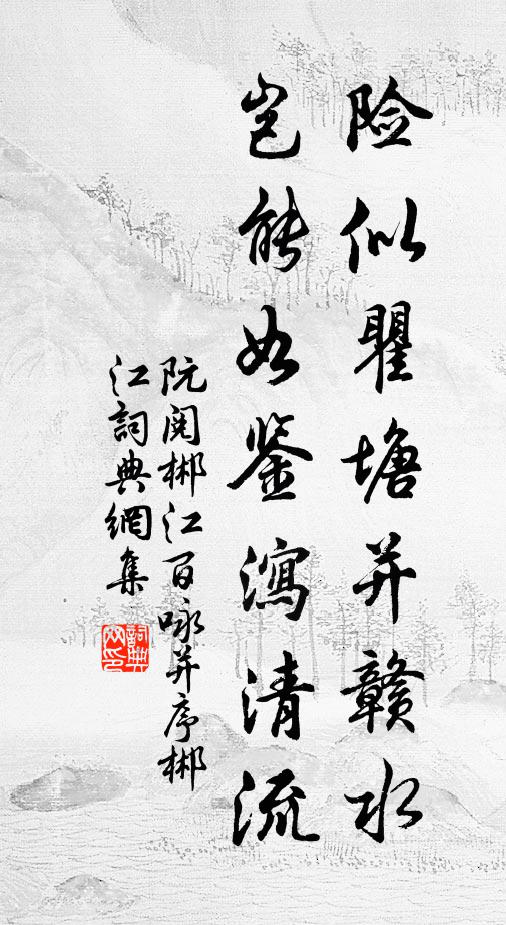 险似瞿塘并赣水
岂能如鉴泻清流
阮阅郴江百咏并序郴
江詞典網集
詞典